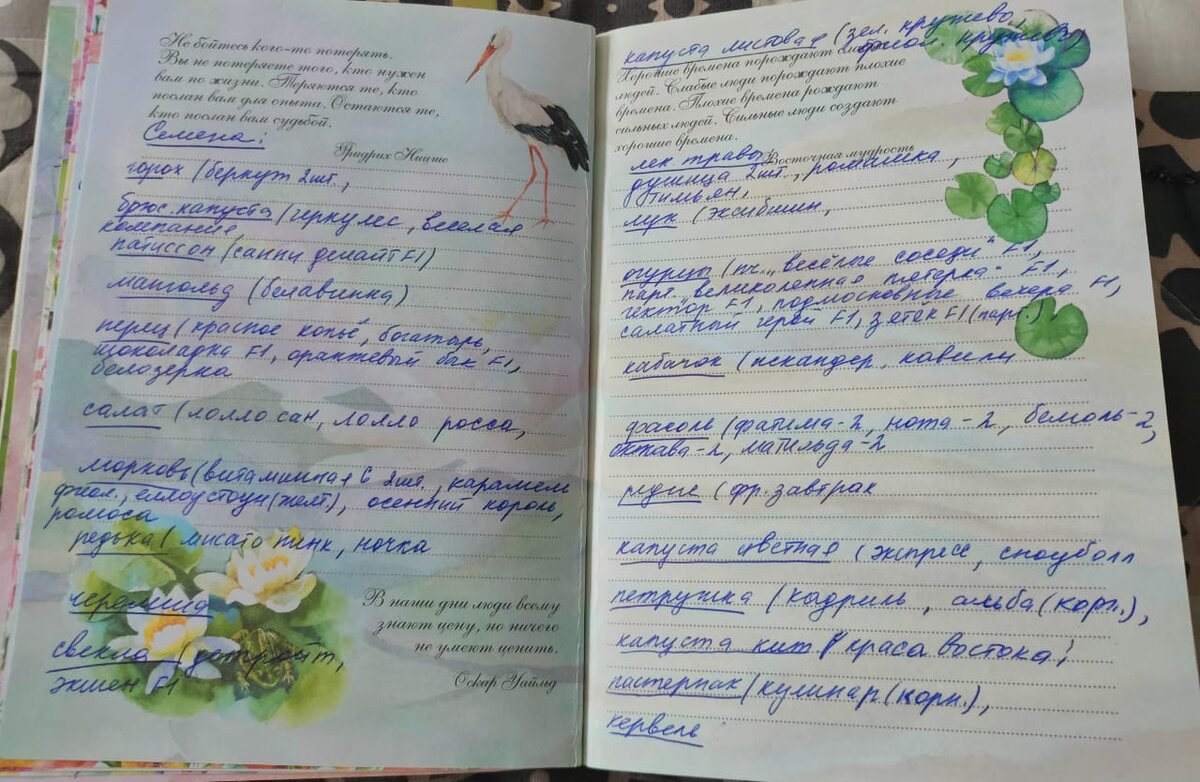 Не бойтесь кого-то потерять.
Вы не потеряете того, кто нужен
вам по жизни. Теряются те, кто
послан вам для опыта. Остаются те,
кто послан вам судьбой.
Фридрих Ницше
Семена:
горох (беркут 2шт.,
брюс. капуста (геркулес, веселая
компания,
патиссон (санни делайт F1)
мангольд (белавинка)
перец ("красное копьё", богатырь,
шоколадка F1, оранжевый бак F1,
белозерка
салат (лолло сан, лолло росса,
морковь (витаминная 6 2шт., карамель
фиол., еллоустоун (жёлт), осенний король,
ромоса
редька (мисато пинк, ночка
черемша
свекла (детройт,
экшен F1
В наши дни люди всему
знают цену, но ничего
не умеют ценить.
Оскар Уайльд
капуста листовая (зел. кружево,
фиол. кружево)
Хорошие времена порождают слабых
людей. Слабые люди порождают плохие
времена. Плохие времена рождают
сильных людей. Сильные люди создают
хорошие времена.
Восточная мудрость
лек трава
душица 2шт., ромашка,
тимьян,
лук (эксибишен,
огурец (пч. "весёлые соседи" F1,
парт. "великолепная пятерка" F1,
гектор F1, подмосковные вечера F1,
салатный герой F1, зетек F1 (парт.)
кабачок (искандер, кавили
фасоль (фатима-2, нота-2, бемоль-2,
октава-2, матильда-2
редис (фр. завтрак
капуста цветная (экспресс, сноуболл
петрушка (кадриль, альба (корн.),
капуста кит (краса востока;
пастернак (кулинар (корн.),
кервель